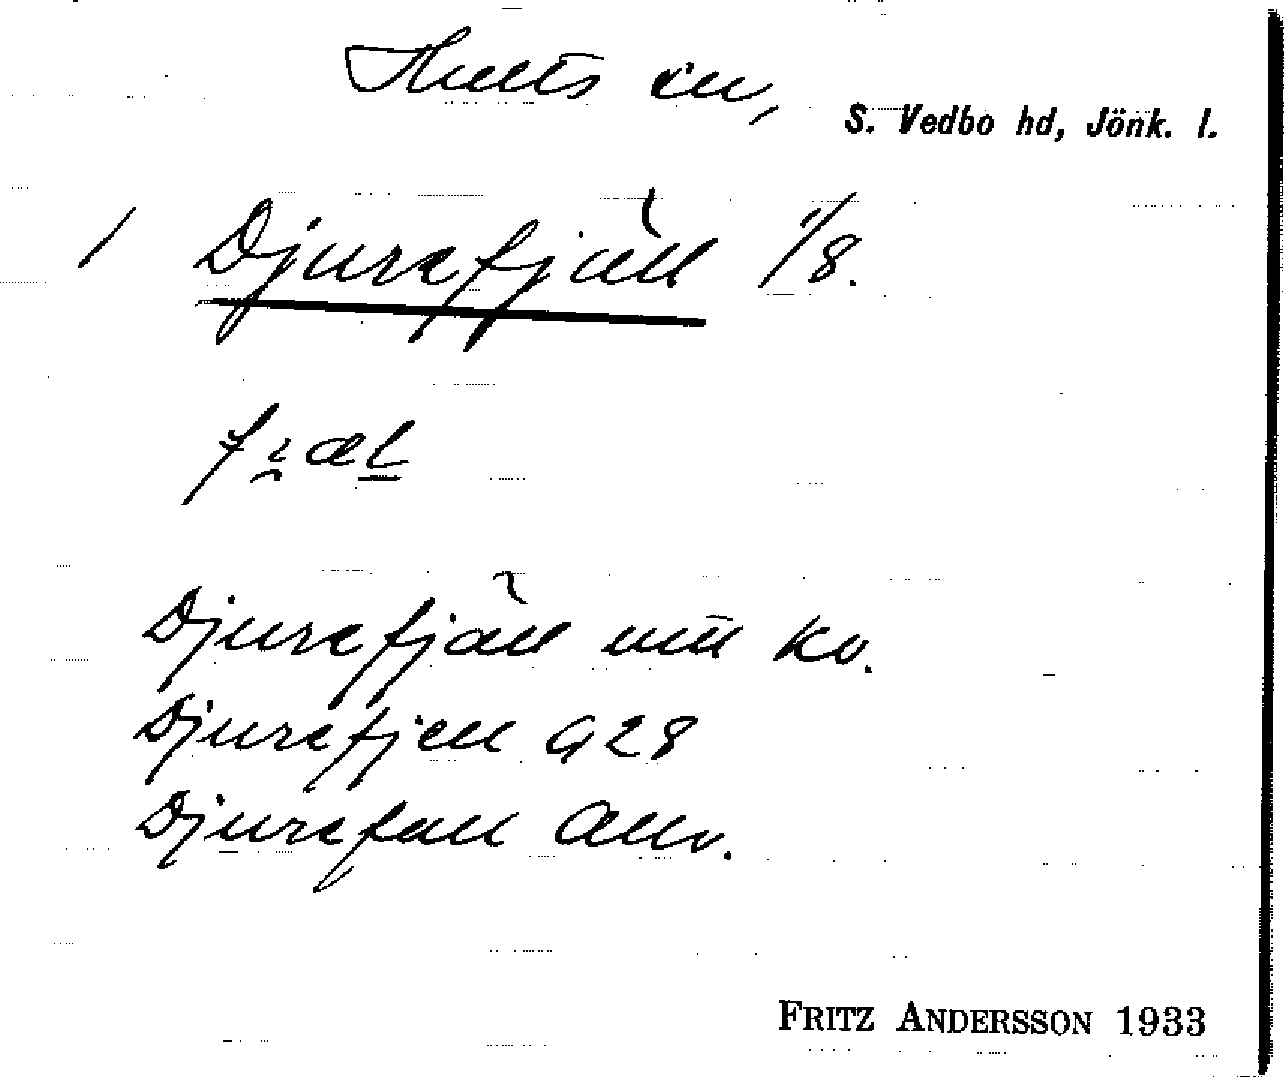 Hults sn,
S. Vedbo hd, Jönk. l.
1 Djursfjäll 1/8.
Djursfjäll mtl Kv.
Djursfjell G 28
Djursfall Allv.
FRITZ ANDERSSON 1933